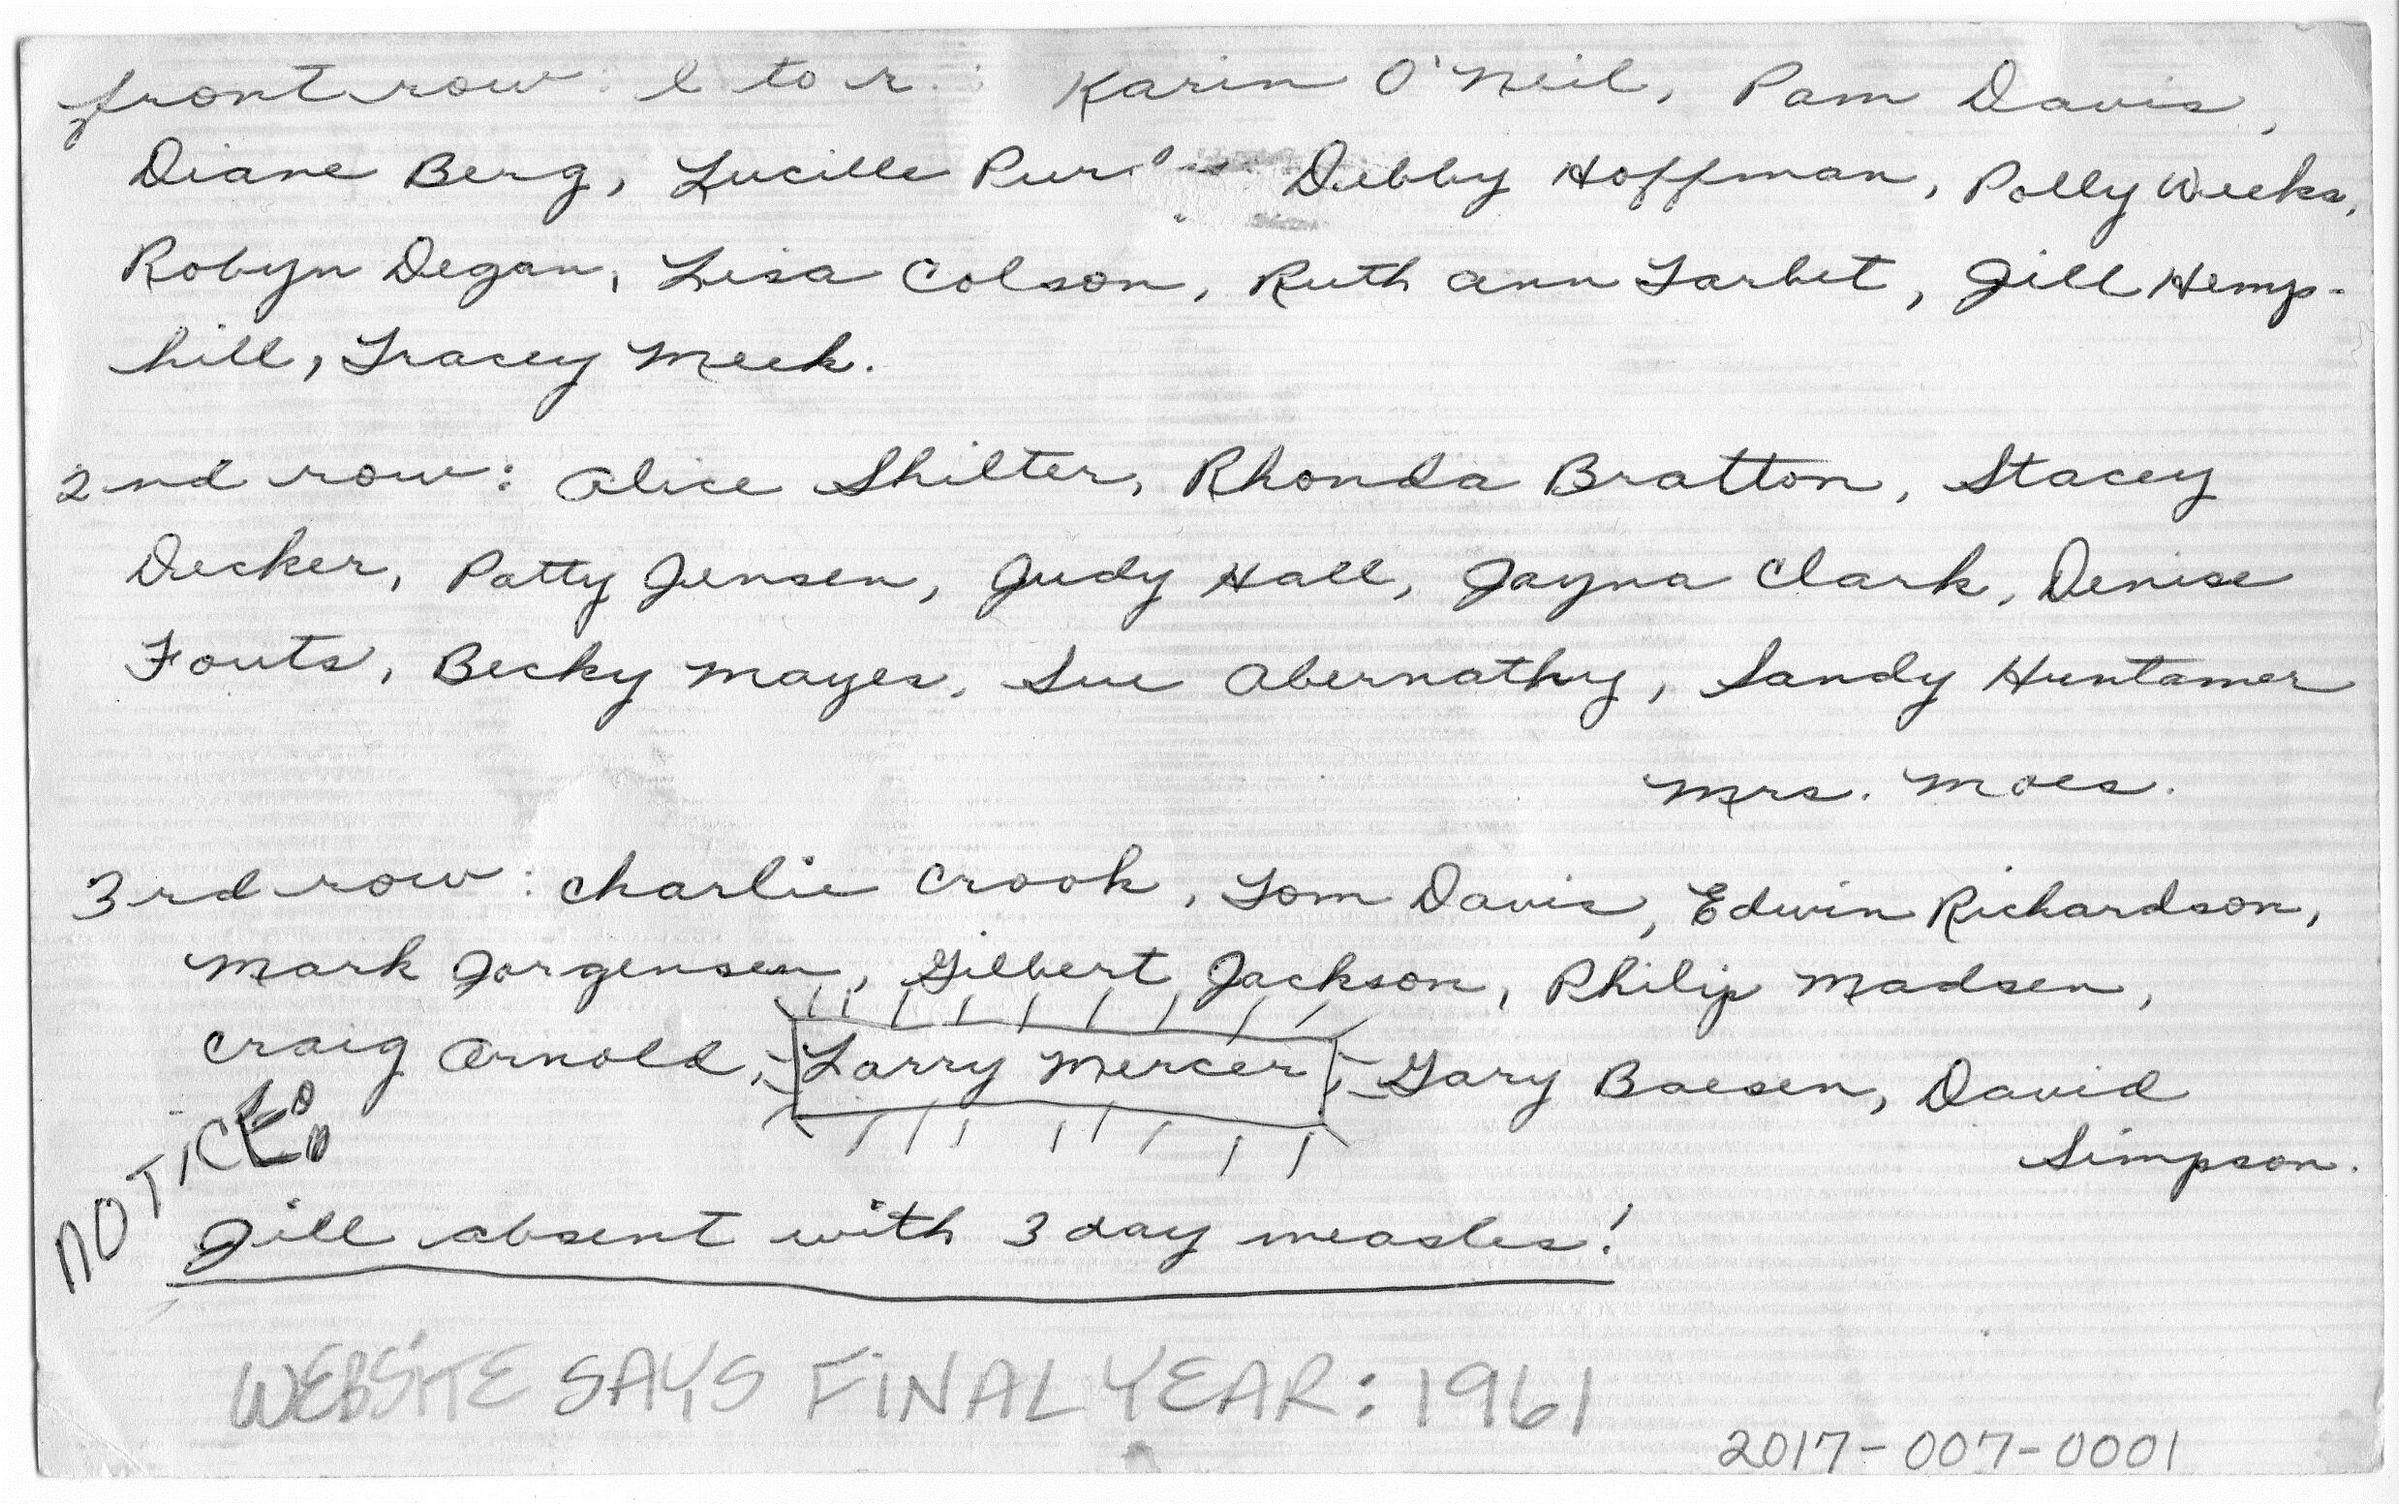 front row: l to r: Karin O'Neil, Pam Davis,
Diane Berg, Lucille Debby Hoffman, Polly Weeks,
Robyn Degan, Lisa Colson, Ruth Ann Tarbet, Jill Hemp-
hill, Tracey Meek.
2nd row: Alice Shilter, Rhonda Bratton, Stacey
Decker, Patty Jensen, Judy Hall, Jayna Clark, Denise
Fouts, Becky Mayes, Sue Abernathy, Sandy Huntamer
Mrs. Moes.
3rd row: Charlie Crook, Tom Davis, Edwin Richardson,
Mark Jorgensen, Gilbert Jackson, Philip Madsen,
Craig Arnold, Larry Mercer, Gary Baesen, David
Simpson.
NOTICE:
Jill absent with 3 day measles!
WEBSITE SAYS FINAL YEAR: 1961
2017-007-0001